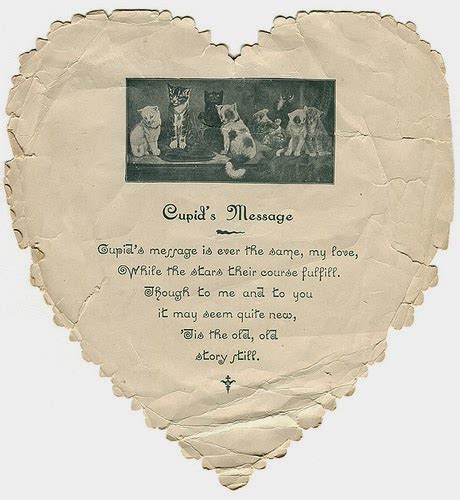 Cupid's Message
Cupid's message is ever the same, my love,
While the stars their course fulfill.
Though to me and to you
it may seem quite new,
'Tis the old, old
story still.